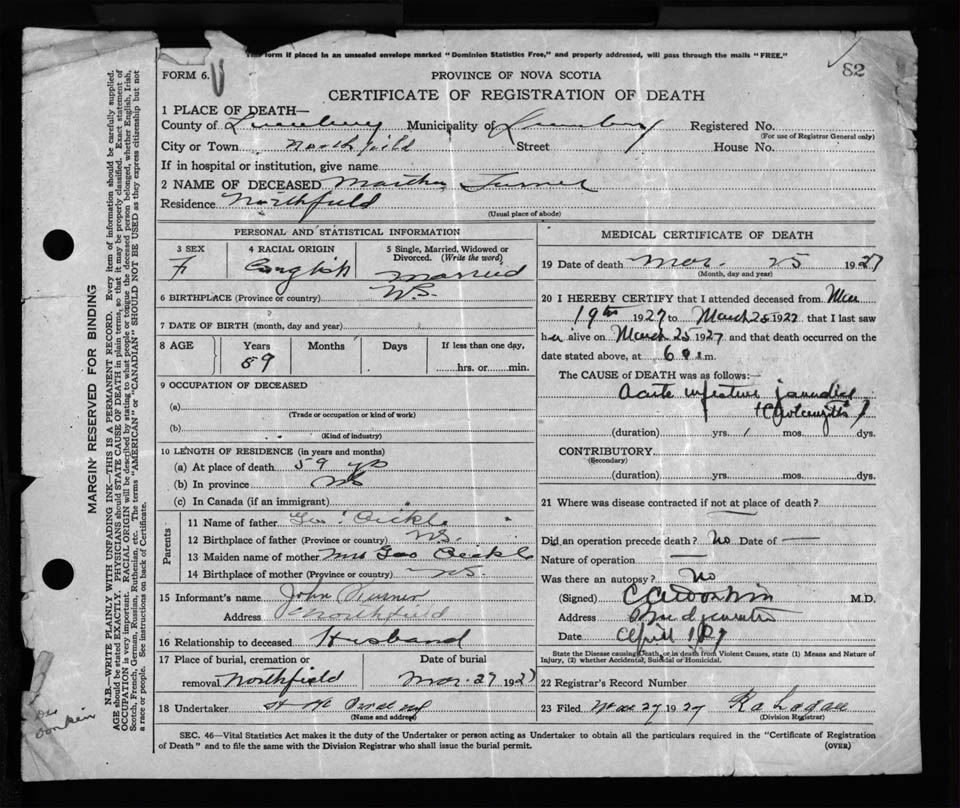 This form if placed in an unsealed envelope marked "Dominion Statistics Free," and properly addressed, will pass through the mails "FREE."
82
FORM 6.
PROVINCE OF NOVA SCOTIA
CERTIFICATE OF REGISTRATION OF DEATH
1 PLACE OF DEATH—
County of Lunenburg Municipality of Lunenburg Registered No.
(For use of Registrar General only)
City or Town Northfield Street House No.
If in hospital or institution, give name
2 NAME OF DECEASED Martha Turner
Residence Northfield
(Usual place of abode)
PERSONAL AND STATISTICAL INFORMATION
3 SEX
F
4 RACIAL ORIGIN
English
5 Single, Married, Widowed or Divorced. (Write the word)
Married
6 BIRTHPLACE (Province or country) N.S.
7 DATE OF BIRTH (month, day and year)
8 AGE
Years Months Days If less than one day,
59 hrs. or min.
9 OCCUPATION OF DECEASED
(a)
(Trade or occupation or kind of work)
(b)
(Kind of industry)
10 LENGTH OF RESIDENCE (in years and months)
(a) At place of death 59 yrs
(b) In province NS
(c) In Canada (if an immigrant)
Parents
11 Name of father Geo.
12 Birthplace of father (Province or country) N.S.
13 Maiden name of mother Mrs Geo
14 Birthplace of mother (Province or country) NS.
15 Informant's name John Turner
Address Northfield
16 Relationship to deceased Husband
17 Place of burial, cremation or Date of burial
removal Northfield Mar. 27 1927
18 Undertaker
(Name and address)
MEDICAL CERTIFICATE OF DEATH
19 Date of death Mar. 25 1927
(Month, day and year)
20 I HEREBY CERTIFY that I attended deceased from Mar
19th 1927 to March 25 1927 that I last saw
her alive on March 25 1927 and that death occurred on the
date stated above, at 6 m.
The CAUSE of DEATH was as follows:—
Acute infective jaundice
(duration) yrs. 1 mos. dys.
CONTRIBUTORY
(Secondary)
(duration) yrs. mos. dys.
21 Where was disease contracted if not at place of death? —
Did an operation precede death? No Date of —
Nature of operation —
Was there an autopsy? No
(Signed) M.D.
Address Bridgewater
Date April 1 27
State the Disease causing Death, or in death from Violent Causes, state (1) Means and Nature of
Injury, (2) whether Accidental, Suicidal or Homicidal.
22 Registrar's Record Number
23 Filed Mar 27 1927
(Division Registrar)
SEC. 46—Vital Statistics Act makes it the duty of the Undertaker or person acting as Undertaker to obtain all the particulars required in the "Certificate of Registration
of Death" and to file the same with the Division Registrar who shall issue the burial permit.
(OVER)
MARGIN RESERVED FOR BINDING
N.B.—WRITE PLAINLY WITH UNFADING INK—THIS IS A PERMANENT RECORD. Every item of information should be carefully supplied.
AGE should be stated EXACTLY. PHYSICIANS should STATE CAUSE OF DEATH in plain terms, so that it may be properly classified. Exact statement of
OCCUPATION is very important. RACIAL ORIGIN will be described by stating to what people or tongue the deceased person belonged, whether English, Irish,
Scotch, French, German, Russian, Ruthenian, etc. The terms "AMERICAN" or "CANADIAN" SHOULD NOT BE USED as they express citizenship but not
a race or people. See instructions on back of Certificate.